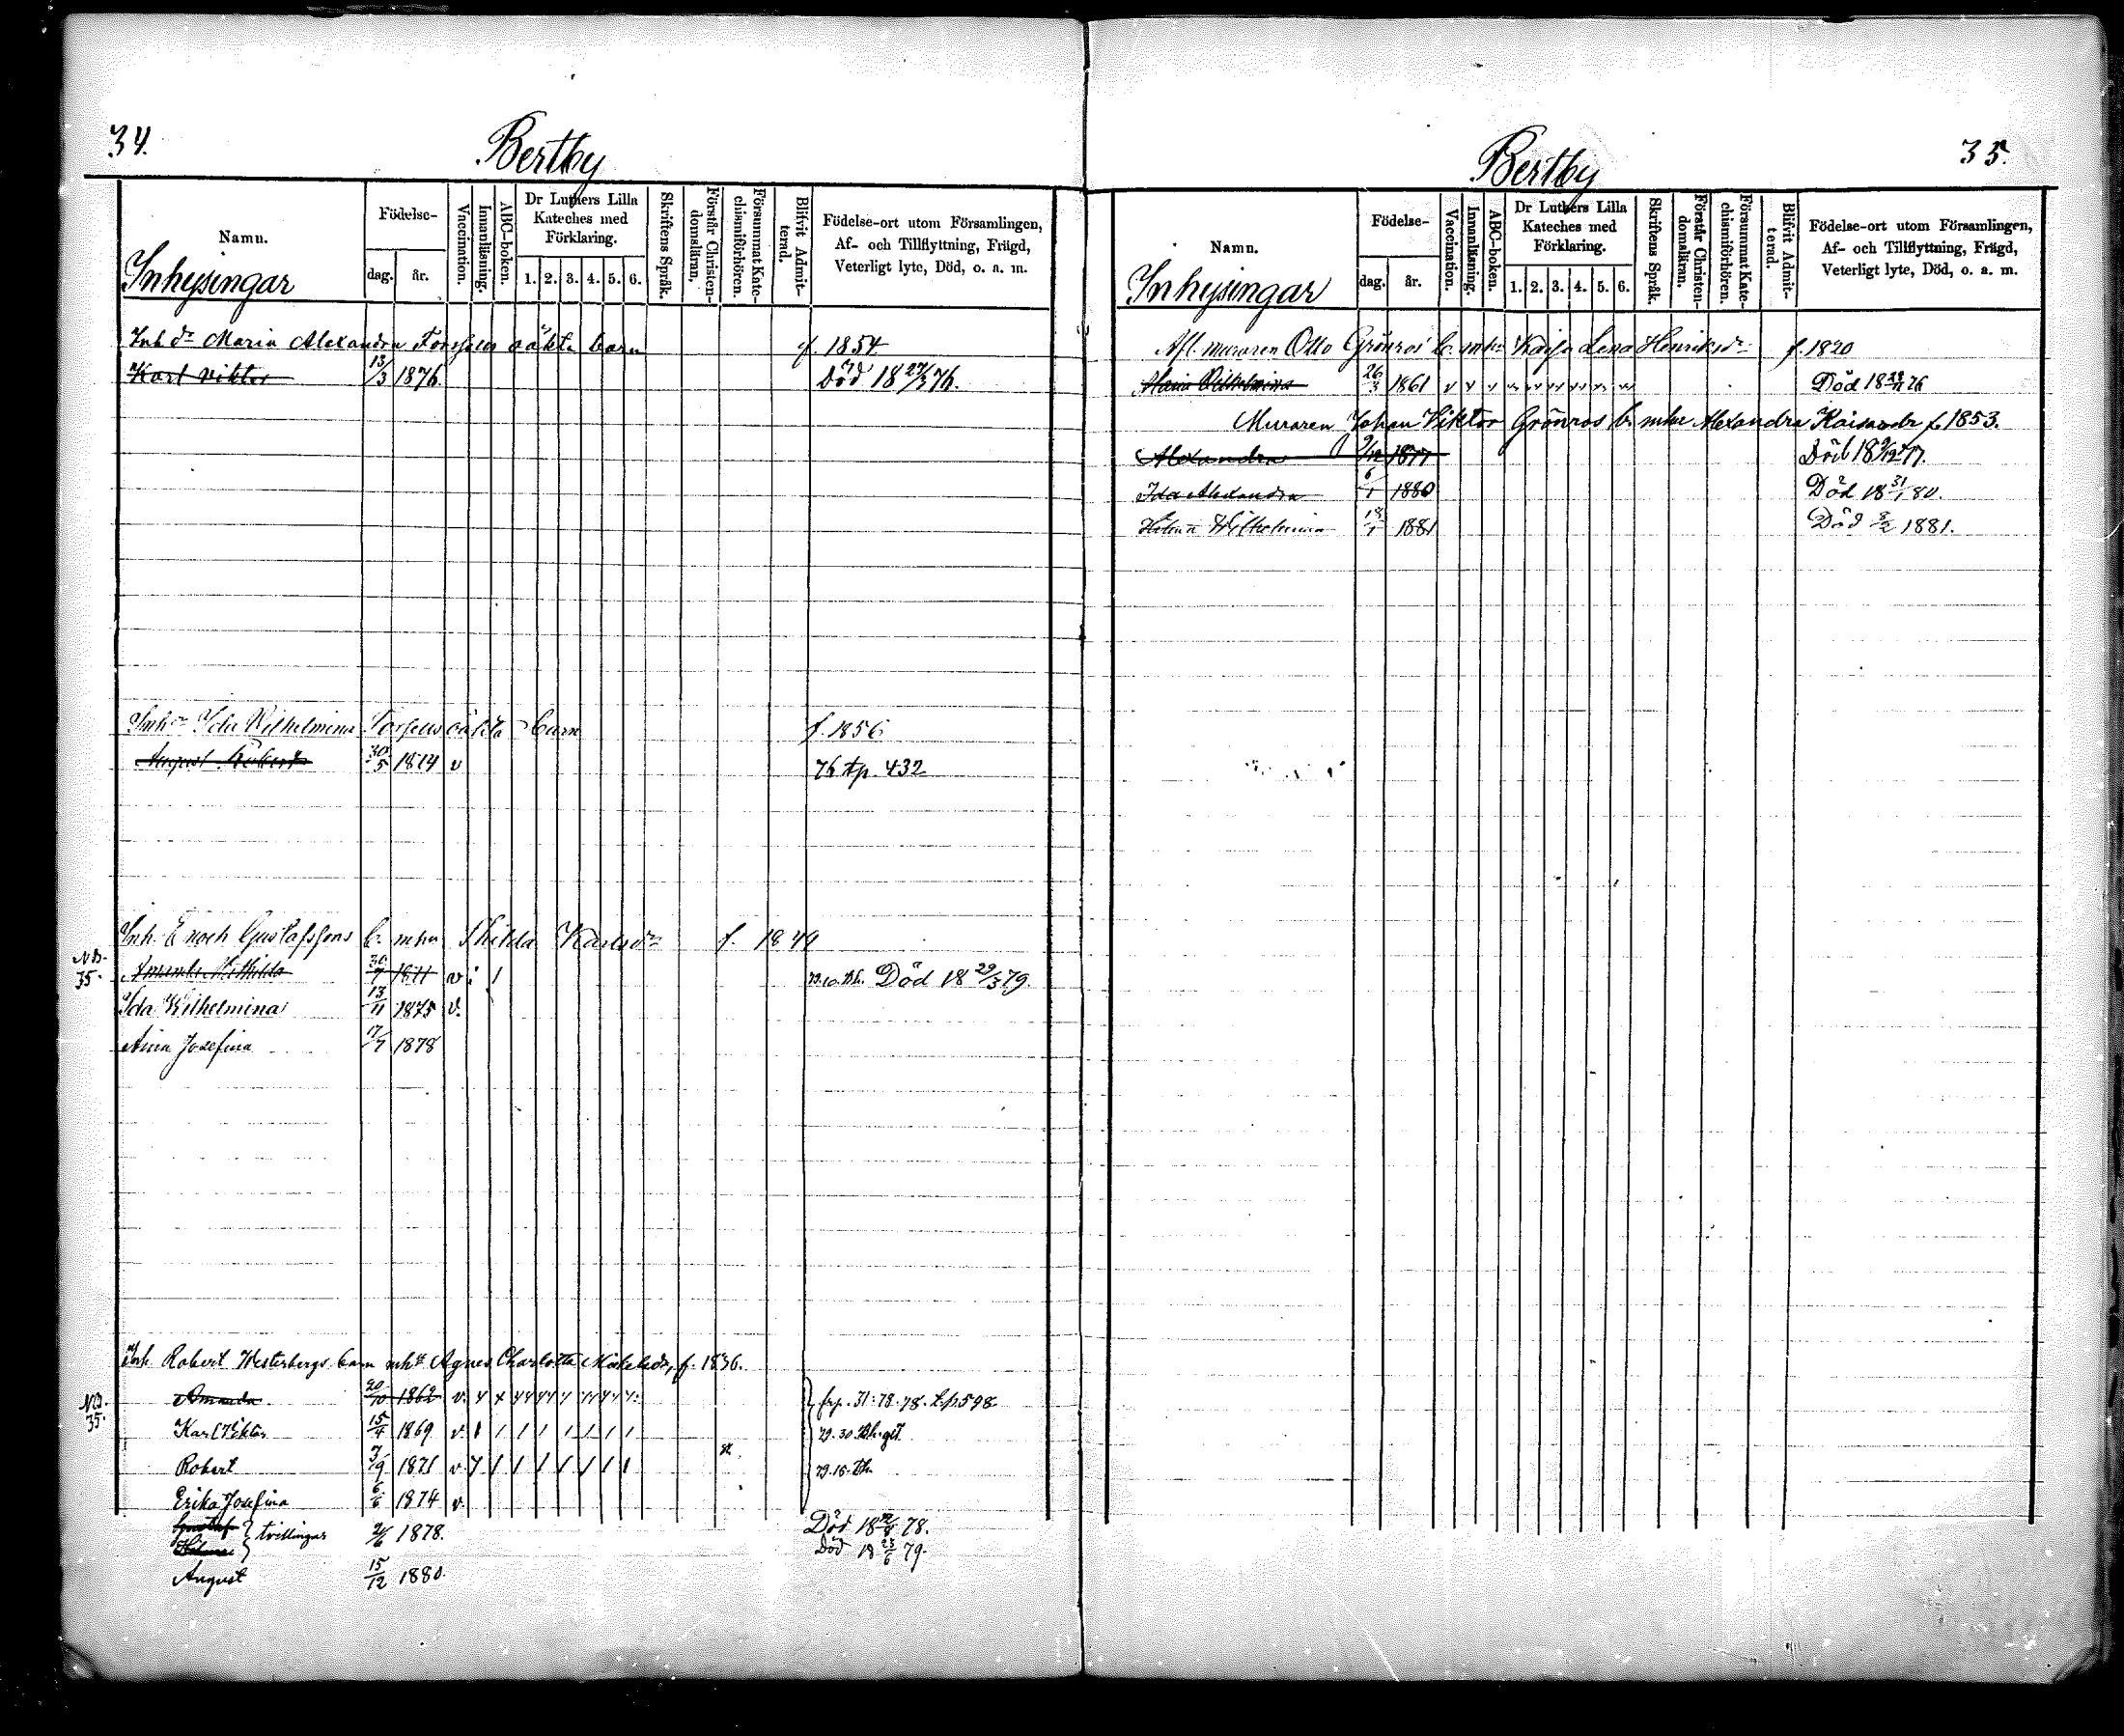 34.
Bertby
Namn.
Inhysingar
Födelse-
dag.
år.
Vaccination.
Innanläsning.
ABC-boken.
Dr Luthers Lilla
Kateches med
Förklaring.
1. 2. 3. 4. 5. 6.
Skriftens Språk.
Förstår Christen-
domsläran.
Försummat Kate-
chismiförhören.
Blifvit Admit-
terad.
Födelse-ort utom Församlingen,
Af- och Tillflyttning, Frägd,
Veterligt lyte, Död, o. a. m.
Inh dr Maria Alexandra oäkta barn f. 1854
Karl Viktor 13/3 1876 Död 18 27/3 76.
Inh dr Ida Wilhelmina oäkta barn f. 1856
August Robert 30/5 1874 v 76 tp. 432
Inh. Enoch Gustafssons b. mhu Karlsdr f. 1849
NB.
35.
Amanda Mathilda 30/7 1871 v Död 18 29/3 79.
Ida Wilhelmina 13/11 1875 v.
Aina Josefina 17/7 1878
Inh. Robert Westerbergs barn mht Agnes Charlotta f. 1836.
NB.
35.
Amanda 20/10 1862 v. frp. 31: 78. 78. t.p. 598
Karl Viktor 15/4 1869 v. 1 1 1 1 1 1 1 1
Robert 7/9 1871 v.
Erika Josefina 6/6 1874 v.
Gustaf } tvillingar 2/6 1878. Död 78.
Hilma } Död 18 23/6 79.
August 15/12 1880.
35.
Bertby
Namn.
Inhysingar
Födelse-
dag.
år.
Vaccination.
Innanläsning.
ABC-boken.
Dr Luthers Lilla
Kateches med
Förklaring.
1. 2. 3. 4. 5. 6.
Skriftens Språk.
Förstår Christen-
domsläran.
Försummat Kate-
chismiförhören.
Blifvit Admit-
terad.
Födelse-ort utom Församlingen,
Af- och Tillflyttning, Frägd,
Veterligt lyte, Död, o. a. m.
Afl. muraren Otto Grönros' b. mhu Kajsa Lena Henriksdr f. 1820
Maria Wilhelmina 26/3 1861 Död 76
Muraren Johan Viktor Grönros b. mhu Alexandra f. 1853.
Alexandra 9/12 1877 Död 18 9/12 77.
Ida Alexandra 6/1 1880 Död 18 31/1 80.
Hilma Wilhelmina 18/1 1881 Död 8/2 1881.